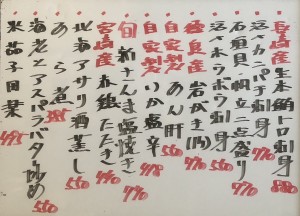 長崎産生本鮪トロ刺身 880
活〆カンパチ刺身 770
石垣貝・帆立二点盛り
活〆ホウボウ刺身 550
岩がき(内) 770
自家製あん肝
自家製いか塩辛 478
旬新さんま塩焼き 770
宮崎産赤鶏たたき 440
北海アサリ酒蒸し 550
あら煮
海老とアスパラバター炒め 550
米茄子田楽 495